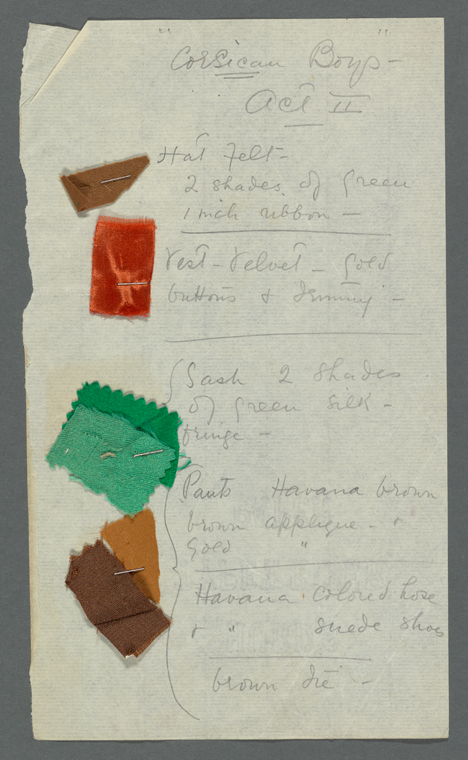 " Corsican Boys - "
Act II
Hat Felt -
2 shades of green
1 inch ribbon -
Vest - Velvet - gold
buttons & -
Sash 2 shades
of green silk -
fringe -
Pants Havana brown
brown applique - +
Gold "
Havana colored hose
+ " suede shoes
brown tie -